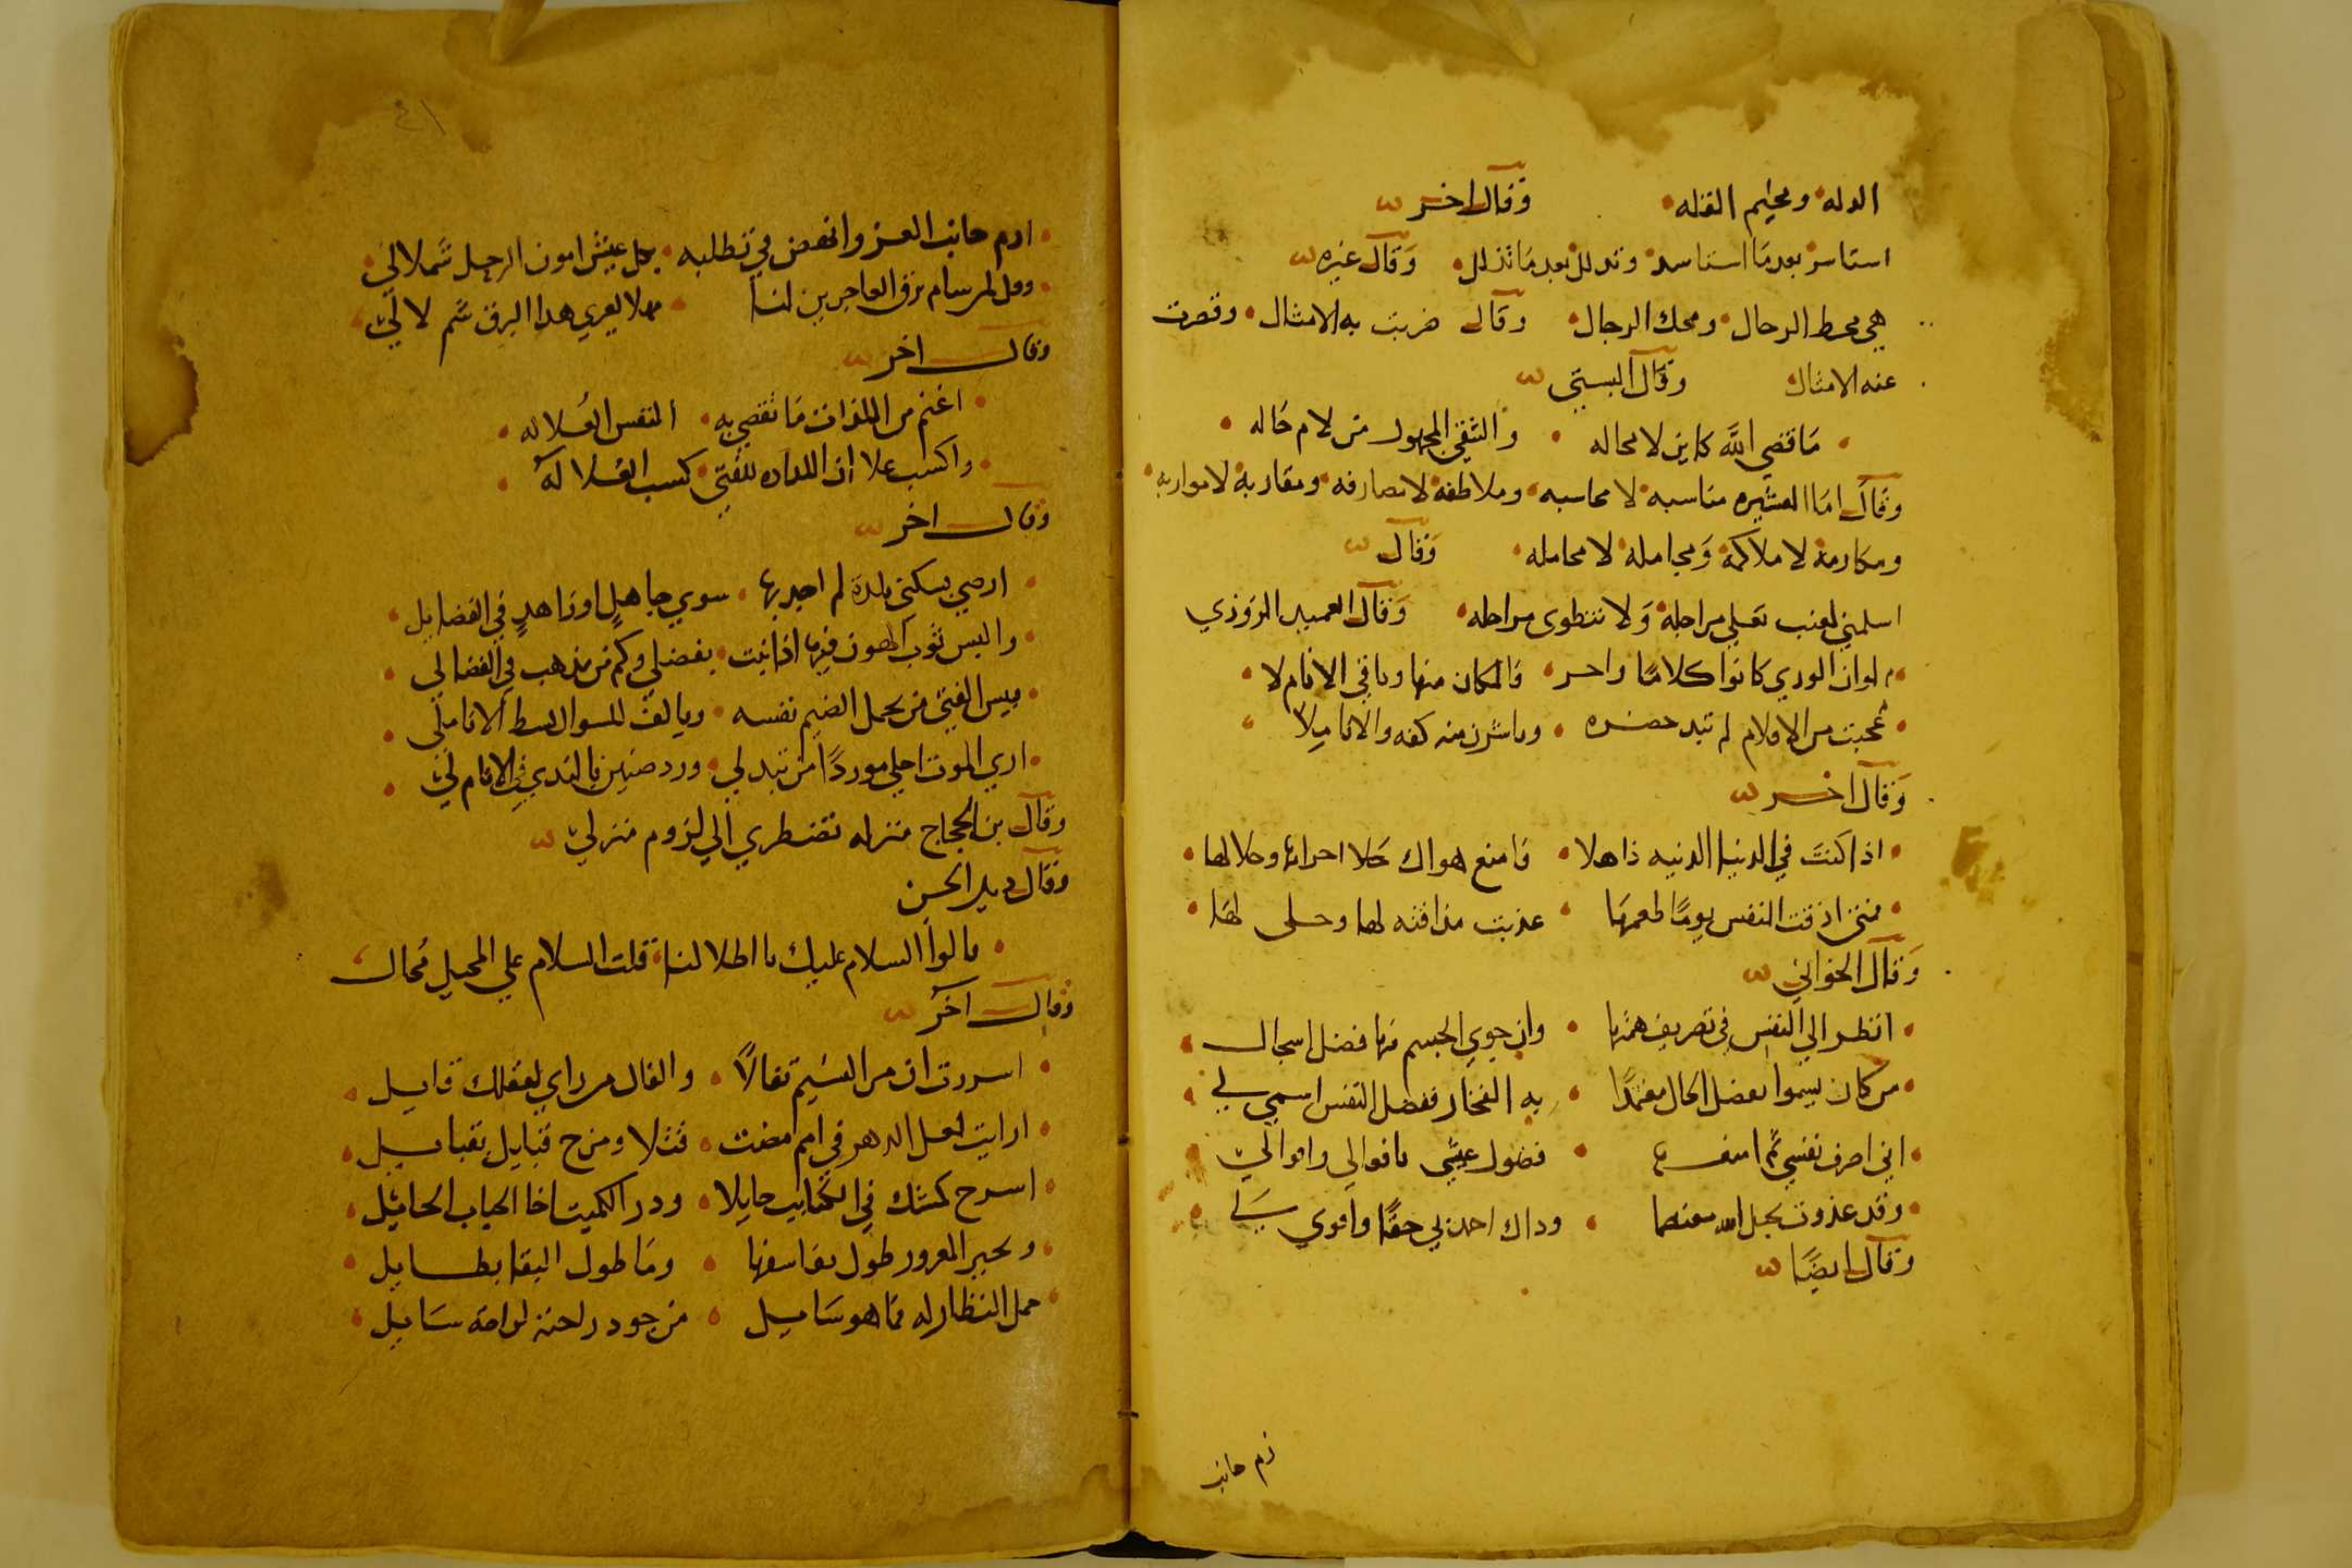 الدله ومخيم القله وقال اخر
استاسر بعدما استاسد وتدلل بعد ما تذلل وقال غيره
هي محط الرحال ومحك الرجال وقال ضربت به الامثال وقصرت
عنه الامثال وقال البستي
ما قضي الله كاين لا محاله والشقي المجهول من لام حاله
وقال اما العشيره مناسبه لا محاسبه وملاطفة لا مصارفه ومقاربة لا مواربه
ومكارمة لا ملاكمة ومجامله لا محامله وقال
اسلمني لعنب تغلي مراجله ولا تنطوى مراحله وقال العميد الزوزني
لو ان الوري كانوا كلاما واحر فا لكان منها وباقي الانام لا
عجبت من الاقلام لم تبد خضره وباشرن منه كفه والاناملا
وقال اخر
اذا كنت في الدنيا الدنيه ذاهلا فامنع هواك حلا احرامها وحلالها
فمتى اذقت النفس يوما طعمها عذبت مذاقته لها وحلى لها
وقال الخوافي
انظر الي النفس في تصريف همتها وان حوي الجسم منها فضل اسجال
من كان يسموا بفضل الحال معتمدا به الفخار ففضل النفس اسمي لي
اني اصرف نفسي ثم امنعها فضول عيشي باقوالي وافوالي
وقد غدوت بحبل الله معتصما وذاك احمد بي حقا واقوي لي
وقال ايضا
زم جانب
٤١
ارم جانب العز وانهض في تطلبه بكل عيش امون الرحل شملالي
وقل لمر سام برق العاجرين لنا هلا يعري هدا البرق شم لا لي
وقال اخر
اغنم من اللذات ما تقضي به النفس العلاله
واكسب علا ان اللداده للفتي كسب العلا له
وقال اخر
ارضي بسكنى بلدة لم اجد بها سوي جاهل او زاهد في الفضايل
والبس ثوب الهون فيها اذا نبت بفضلي وكم من مذهب في الفضا لي
بيس الفتى من يحمل الضيم نفسه ويالف للسوال بسط الانامل
اري الموت احلي موردا من تبدلي ورد ضنين بالندي في الانام لي
وقال بن الحجاج منزله تضطري الي لزوم منزلي
وقال دبلد الحسن
قالوا السلام عليك يا اطلالنا قلت السلام علي المحيل محال
وقال آخر
اسررت ان من النسيم تفالا والفال من راي لعقلك فايل
ارايت لعل الدهر في امم مضت قتلا ومزج قبايل بقبايل
اسرح كمتك في الكتايب جايلا ودر الكميت اخا الحباب الحايل
وبحير المغرور طول بقا سفها وما طول البقا بطايل
حمل النظار له فما هو سايل من جود راحته لراحة سايل